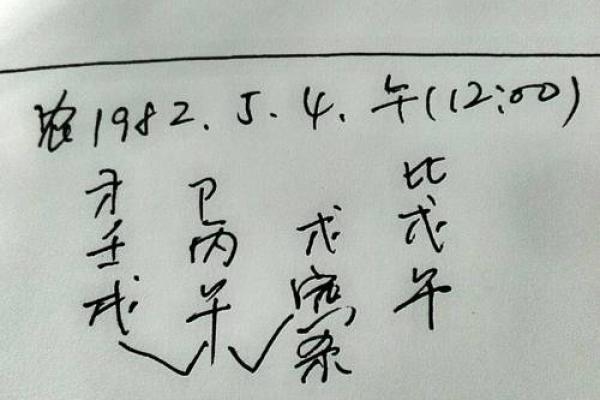 农1982.5.4.午(12:00)
才 卩 比
壬 丙 戊 戊
戌 午 寅 午
杀